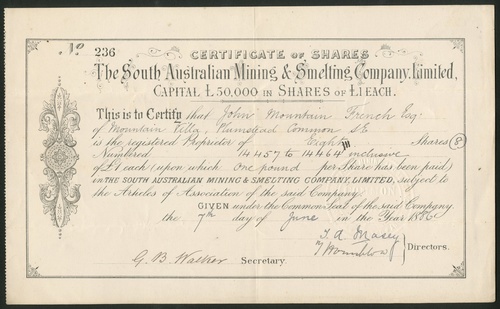 No 236
CERTIFICATE OF SHARES
The South Australian Mining & Smelting Company, Limited,
CAPITAL £50,000 IN SHARES OF £1 EACH.
This is to Certify that John Mountain French Esq.
of Mountain Villa, Plumstead Common SE
is the registered Proprietor of Eight Shares (8)
Numbered 14457 to 14464 inclusive
of £1 each (upon which One pound per Share has been paid)
in THE SOUTH AUSTRALIAN MINING & SMELTING COMPANY, LIMITED, subject to
the Articles of Association of the said Company.
GIVEN under the Common Seal of the said Company
the 7th day of June in the Year 18
G. B. Walker Secretary.
Directors.